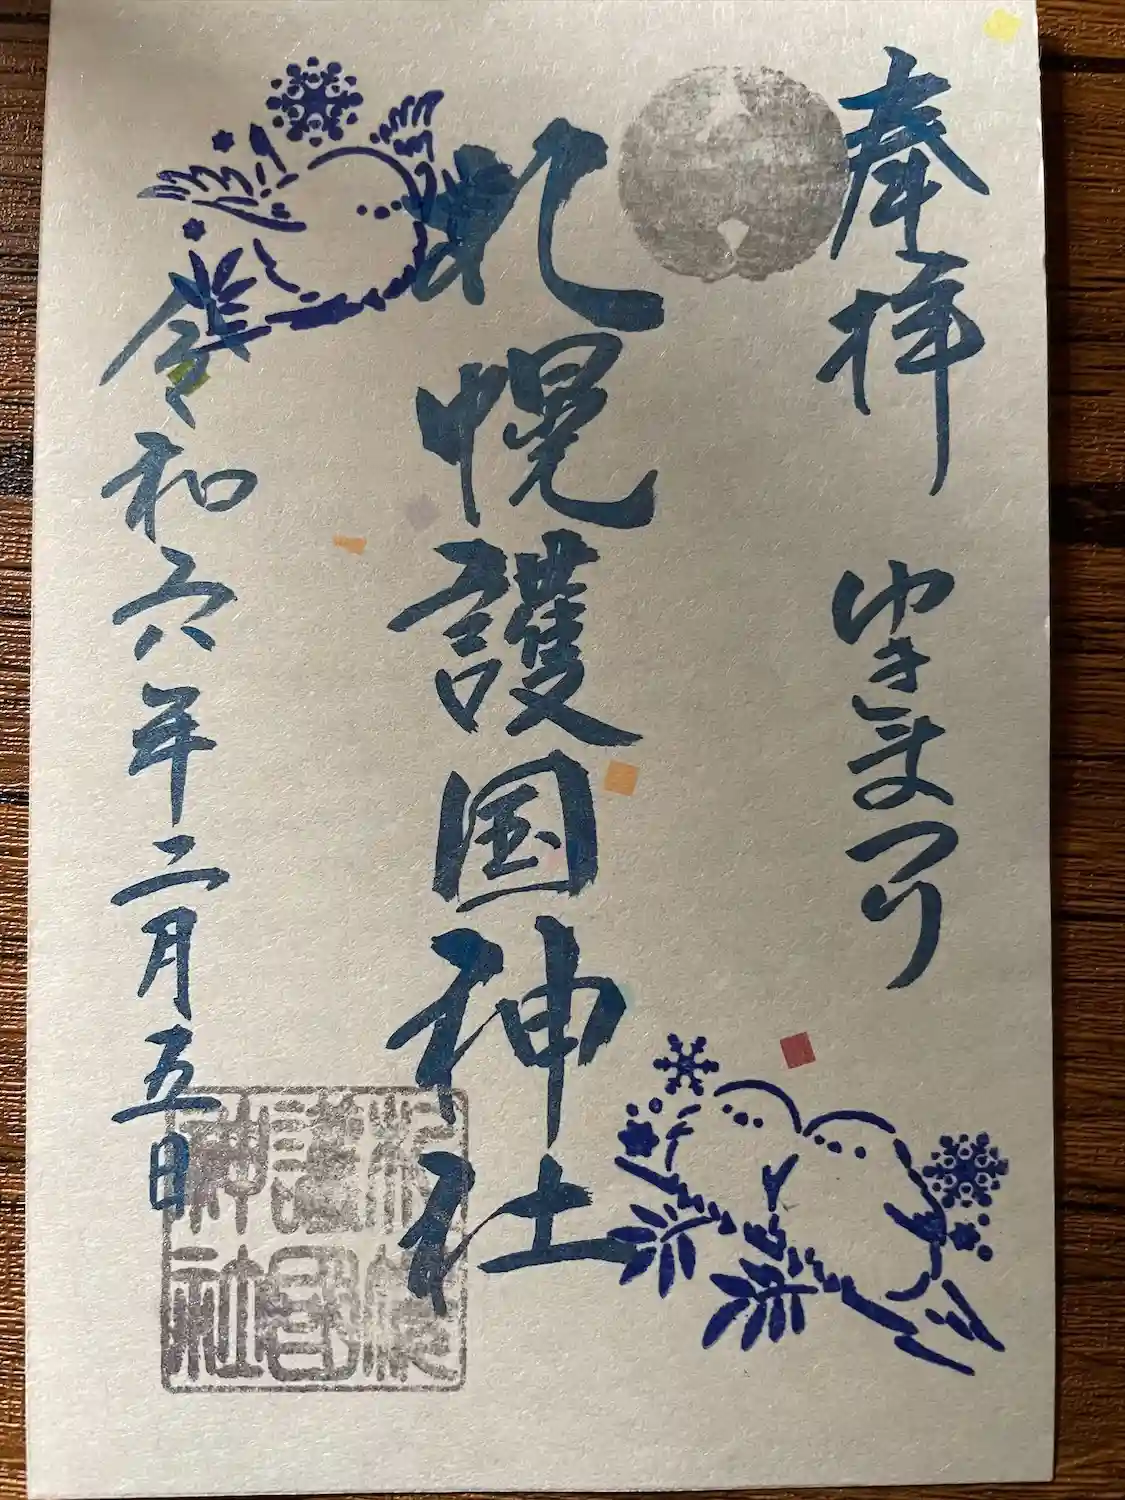 奉拝 ゆきまつり
札幌護国神社
令和六年二月五日
札幌護国神社